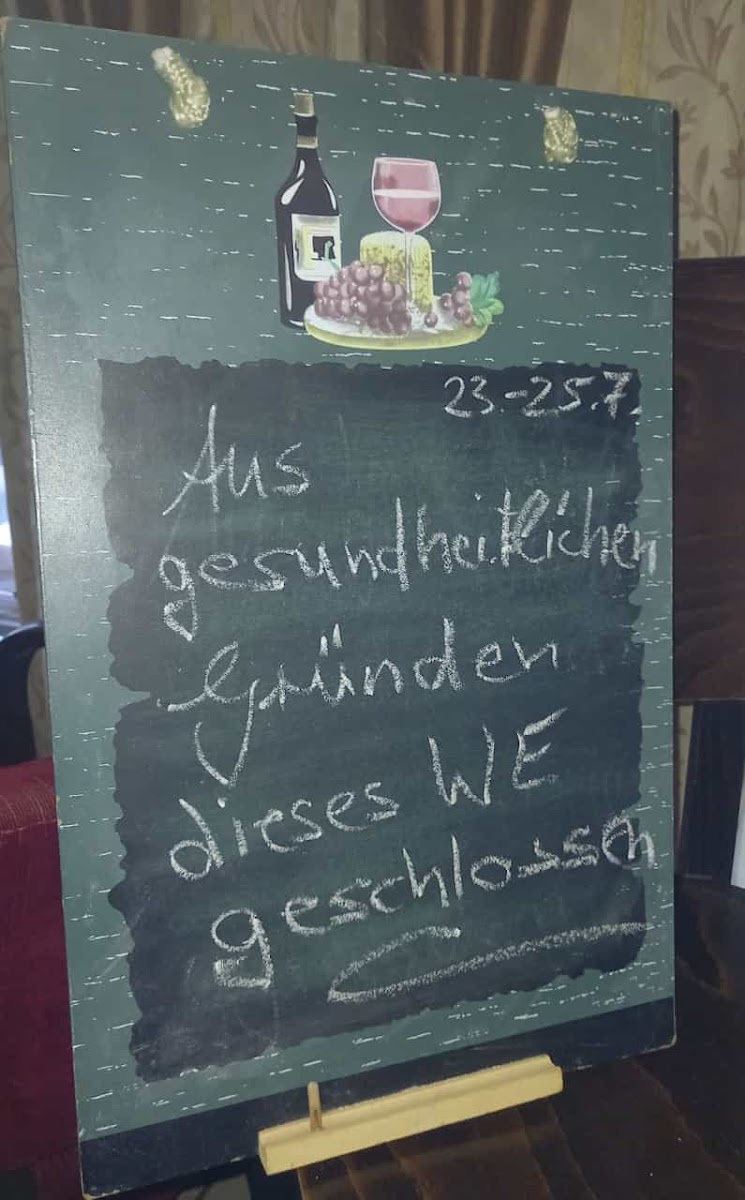 23.-25.7.
Aus
gesundheitlichen
Gründen
dieses WE
geschlossen